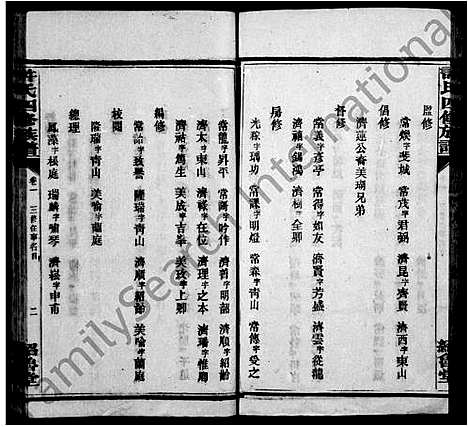 許氏四修族譜
紹魯堂
監修
常煥字斐城 常茂字君弼 濟昆字齊賢 濟西字東山
倡修
蓮溪公裔美瑚兄弟
督修
常義字彥亭 常得字如友 濟賢字芳盛 濟雲字從龍
濟福字錫鴻 濟樹字全卿
房修
光稼字瑀功 常謀字明燈 常森字青山 常修字受之
常僊字昇平 常 字吟作 濟善字明韶 濟順字紹齡
濟太字東山 濟祿字在位 濟理字之本 濟瑞字惟周
濟祜字篤生 美成字吉夆 美政字上卿
編修
常詒字致譽 隆瑞字青山 濟順字紹齡 美喻字蘭庭
校閱
隆瑞字青山 美喻字蘭庭
總理
鳳藻字梫庭 瑞麟字嘯琴 濟崧字申甫
許氏四修族譜
卷一 三修任事名目
二
紹魯堂
FamilySearch International